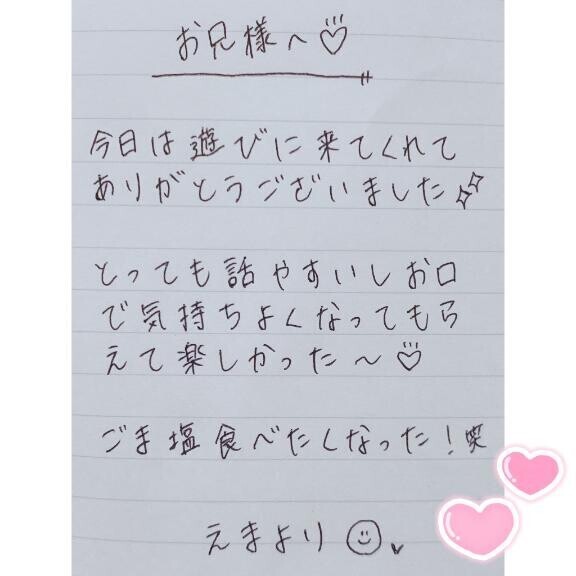 お兄様へ♡
今日は遊びに来てくれて
ありがとうございました✨
とっても話やすいしお口
で気持ちよくなってもら
えて楽しかった〜♡
ごま塩食べたくなった！笑
えまより